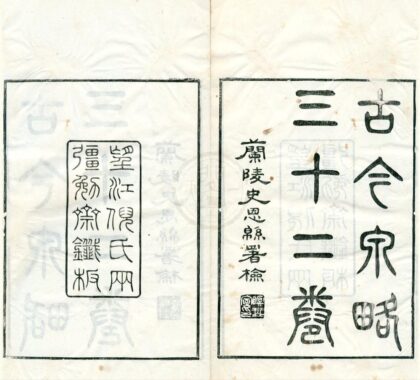 古今泉略
三十二卷
蘭陵史恩緜署檢
望江倪氏兩
彊勉齋鐫板